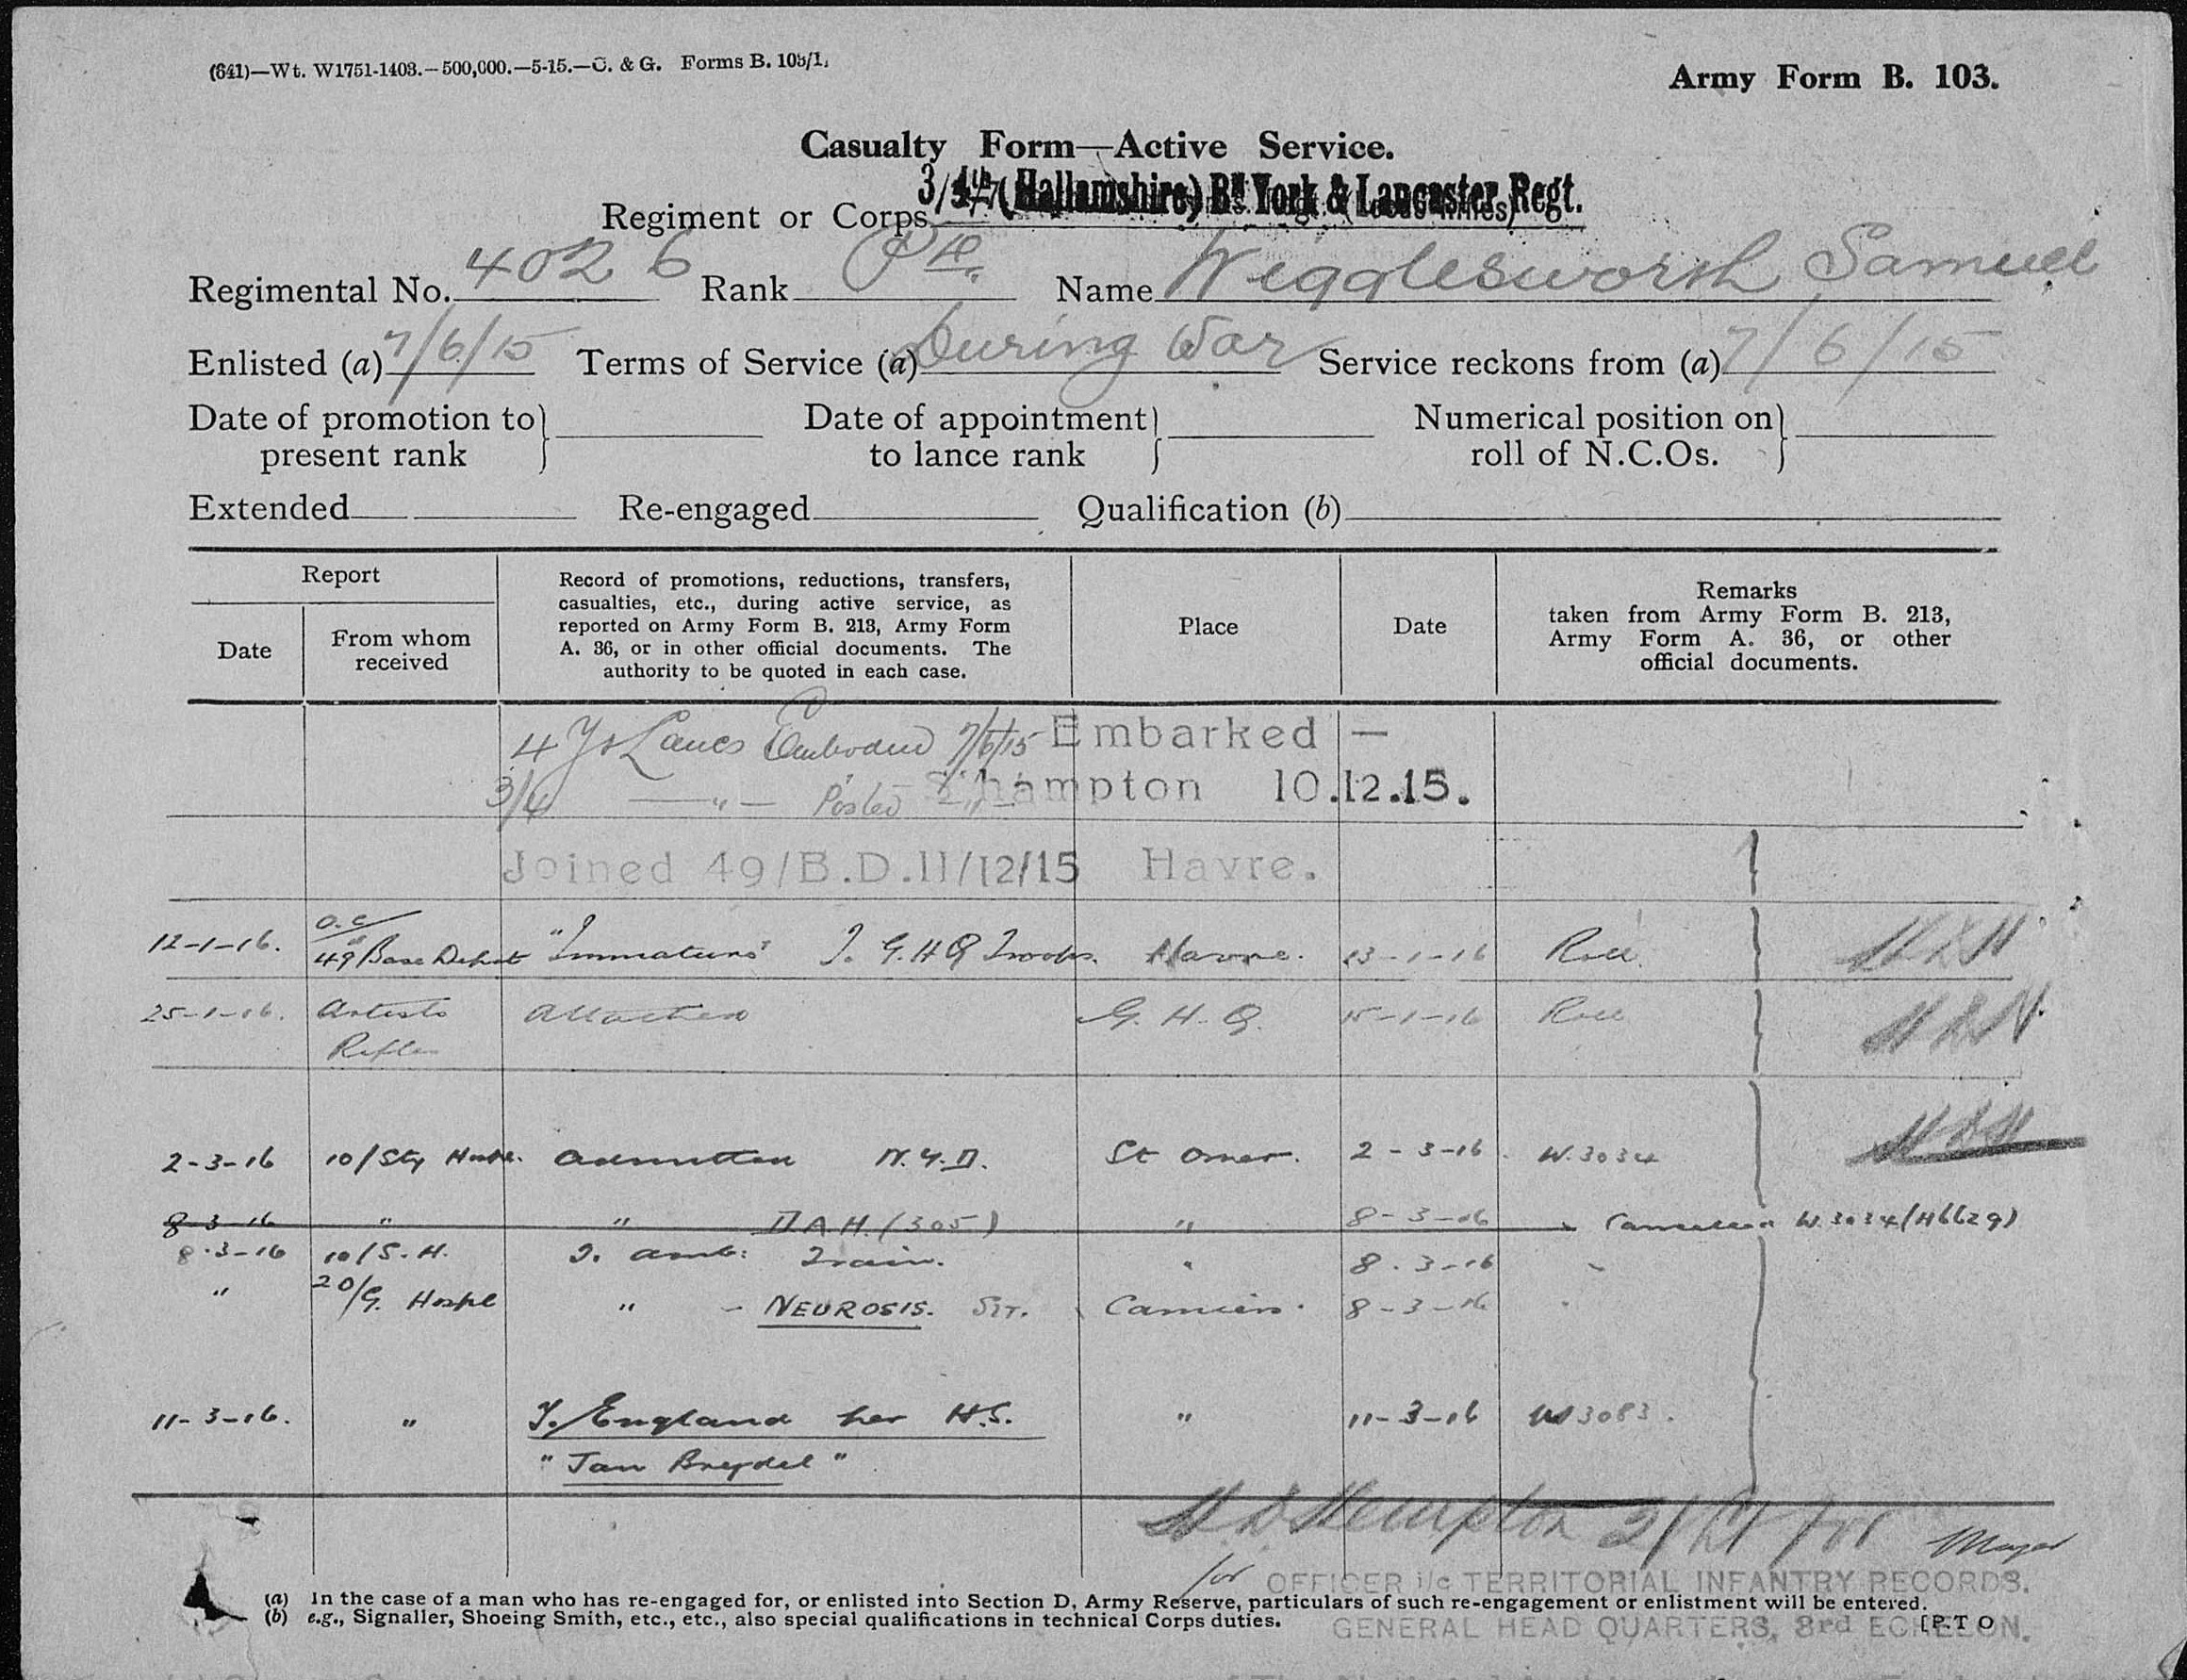 (641)—Wt. W1751-1403.—500,000.—5-15.—C. & G. Forms B. 103/1.
Army Form B. 103.
Casualty Form—Active Service.
Regiment or Corps 3/4th (Hallamshire) Bn York & Lancaster Regt.
Regimental No. 4026 Rank Pte. Name Wigglesworth Samuel
Enlisted (a) 7/6/15 Terms of Service (a) During War Service reckons from (a) 7/6/15
Date of promotion to present rank Date of appointment to lance rank Numerical position on roll of N.C.Os.
Extended Re-engaged Qualification (b)
Report
Date
From whom received
Record of promotions, reductions, transfers, casualties, etc., during active service, as reported on Army Form B. 213, Army Form A. 36, or in other official documents. The authority to be quoted in each case.
Place
Date
Remarks taken from Army Form B. 213, Army Form A. 36, or other official documents.
4 Y & Lancs Embodied 7/6/15 Embarked —
3/4 —"— Posted S'hampton 10.12.15.
Joined 49/B.D. 11/12/15 Havre.
12-1-16. O.C. 49 Base Depot "Immature" T. G.H.Q Troops. Havre. 13-1-16 Roll
25-1-16. Artists Rifles Attached G.H.Q. 15-1-16 Roll
2-3-16 10/Sty Hosp. Admitted N.Y.D. St Omer. 2-3-16 W.3034
8-3-16 " " D.A.H. (305) " 8-3-16 Cancelled W.3034 (H6629)
8-3-16 10/S.H. T. Amb: Train. " 8.3-16
" 20/G. Hospl " - NEUROSIS. Camiers. 8-3-16
11-3-16. " T. England per H.S. " 11-3-16 W3083.
"Jan Breydel"
Major
for OFFICER i/c TERRITORIAL INFANTRY RECORDS.
(a) In the case of a man who has re-engaged for, or enlisted into Section D, Army Reserve, particulars of such re-engagement or enlistment will be entered.
(b) e.g., Signaller, Shoeing Smith, etc., etc., also special qualifications in technical Corps duties.
GENERAL HEAD QUARTERS, 3rd ECHELON.
[P.T O